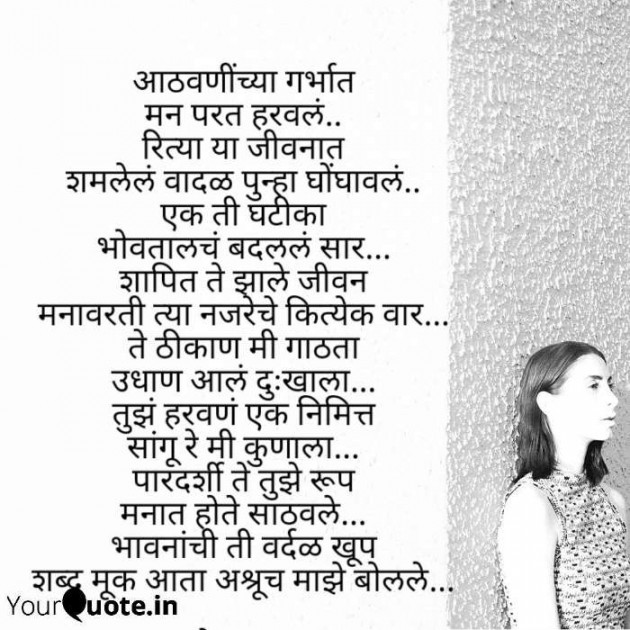 आठवणींच्या गर्भात
मन परत हरवलं..
रित्या या जीवनात
शमलेलं वादळ पुन्हा घोंघावलं..
एक ती घटीका
भोवतालचं बदललं सार...
शापित ते झाले जीवन
मनावरती त्या नजरेचे कित्येक वार...
ते ठीकाण मी गाठता
उधाण आलं दुःखाला...
तुझं हरवणं एक निमित्त
सांगू रे मी कुणाला...
पारदर्शी ते तुझे रूप
मनात होते साठवले...
भावनांची ती वर्दळ खूप
शब्द मूक आता अश्रूच माझे बोलले...
YourQuote.in